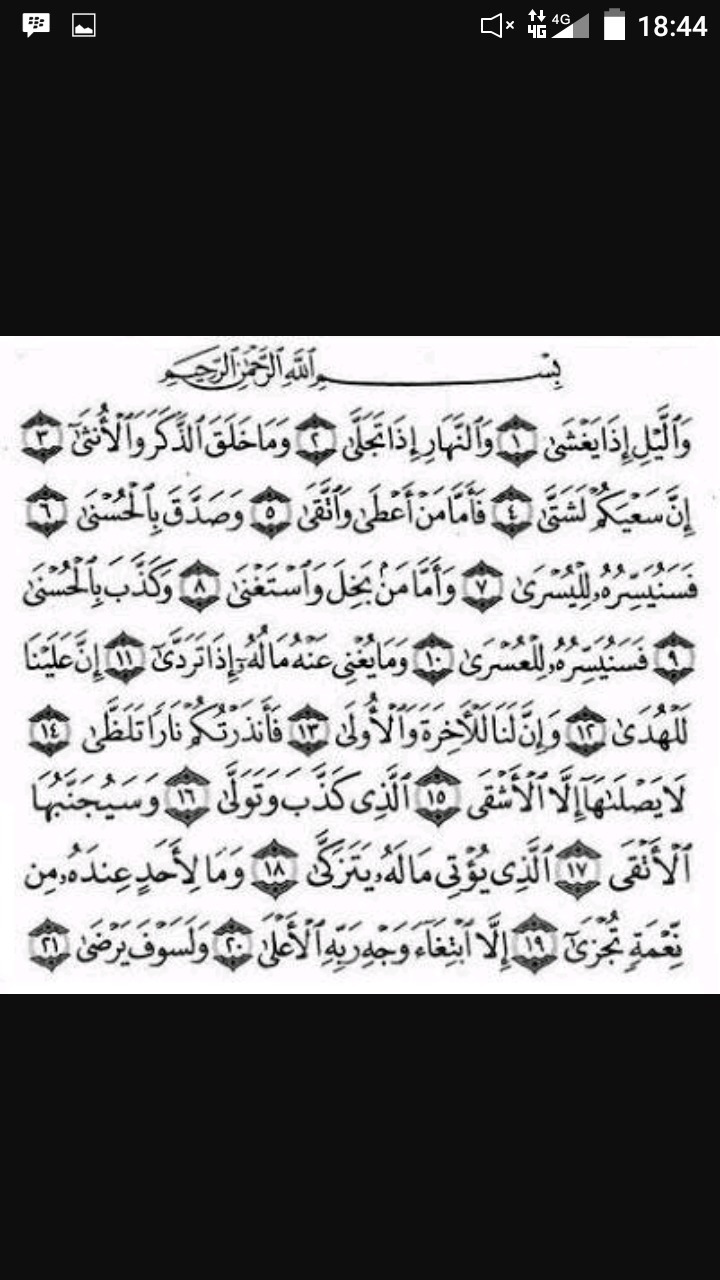 18:44
4G 4G
بِسْمِ ٱللَّهِ ٱلرَّحْمَٰنِ ٱلرَّحِيمِ
وَٱلَّيْلِ إِذَا يَغْشَىٰ ١ وَٱلنَّهَارِ إِذَا تَجَلَّىٰ ٢ وَمَا خَلَقَ ٱلذَّكَرَ وَٱلْأُنثَىٰٓ ٣
إِنَّ سَعْيَكُمْ لَشَتَّىٰ ٤ فَأَمَّا مَنْ أَعْطَىٰ وَٱتَّقَىٰ ٥ وَصَدَّقَ بِٱلْحُسْنَىٰ ٦
فَسَنُيَسِّرُهُۥ لِلْيُسْرَىٰ ٧ وَأَمَّا مَنۢ بَخِلَ وَٱسْتَغْنَىٰ ٨ وَكَذَّبَ بِٱلْحُسْنَىٰ
٩ فَسَنُيَسِّرُهُۥ لِلْعُسْرَىٰ ١٠ وَمَا يُغْنِي عَنْهُ مَالُهُۥٓ إِذَا تَرَدَّىٰٓ ١١ إِنَّ عَلَيْنَا
لَلْهُدَىٰ ١٢ وَإِنَّ لَنَا لَلْءَاخِرَةَ وَٱلْأُولَىٰ ١٣ فَأَنذَرْتُكُمْ نَارًا تَلَظَّىٰ ١٤
لَا يَصْلَىٰهَآ إِلَّا ٱلْأَشْقَى ١٥ ٱلَّذِي كَذَّبَ وَتَوَلَّىٰ ١٦ وَسَيُجَنَّبُهَا
ٱلْأَتْقَى ١٧ ٱلَّذِي يُؤْتِي مَالَهُۥ يَتَزَكَّىٰ ١٨ وَمَا لِأَحَدٍ عِندَهُۥ مِن
نِّعْمَةٍ تُجْزَىٰٓ ١٩ إِلَّا ٱبْتِغَآءَ وَجْهِ رَبِّهِ ٱلْأَعْلَىٰ ٢٠ وَلَسَوْفَ يَرْضَىٰ ٢١